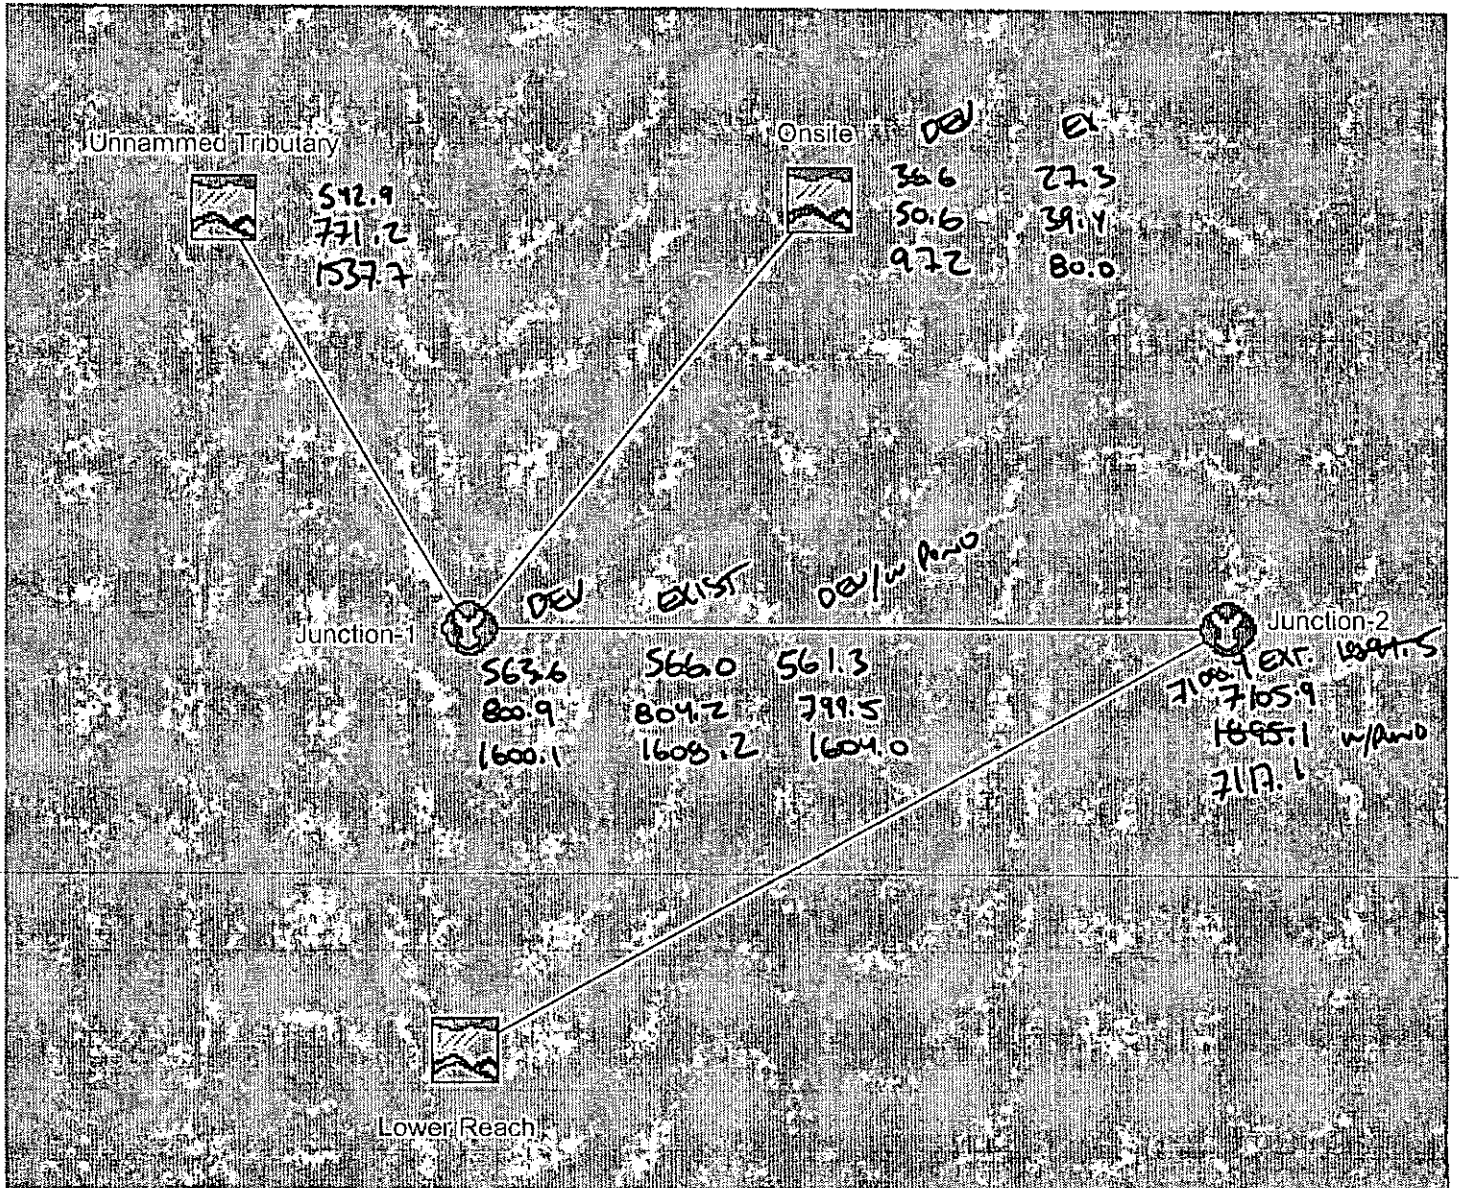 Unnammed Tributary
542.9
771.2
1537.7
Onsite
DEV EX
36.6 27.3
50.6 39.4
97.2 80.0
Junction-1
DEV EXIST DEV/w POND
563.6 566.0 561.3
800.9 804.2 799.5
1600.1 1608.2 1604.0
Junction-2
EXT.
7105.9
1695.1 w/POND
7117.1
Lower Reach